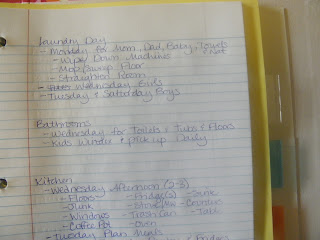 Laundry Day
- Monday for Mom, Dad, Baby, Towels
- Wipe Down Machines
- Mop/Sweep Floor
- Straighten Room
- Wednesday Girls
- Tuesday & Saturday Boys
Bathrooms
- Wednesday for Toilets & Tubs & Floors
- Kids Window & pick up Daily
Kitchen
- Wednesday Afternoon (2-3)
- Floors - Fridge(s) - Sink
- Stove - Counter
- Windows - Trash Can - Table
- Coffee Pot - Oven
- Tuesday Plan Meals